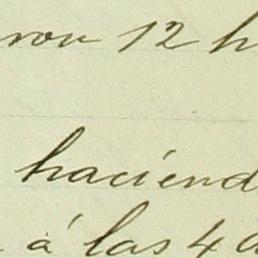 ron 12 h
haciend
á las 4 a